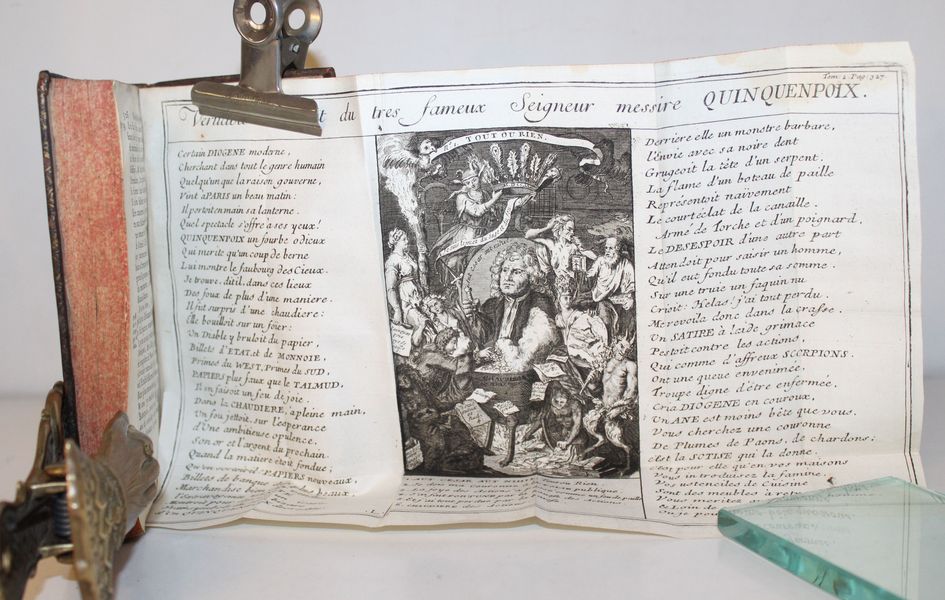 Tom: 2. Pag: 327.
du tres fameux Seigneur messire QUINQUENPOIX.
Certain DIOGENE moderne,
Cherchant dans tout le genre humain
Quelqu'un que la raison gouverne,
Vint à PARIS un beau matin:
Il portoit en main sa lanterne.
Quel spectacle s'offre à ses yeux!
QUINQUENPOIX un fourbe odieux
Qui merite qu'un coup de berne
Lui montre le faubourg des Cieux.
Je trouve, dit il, dans ces lieux
Des foux de plus d'une maniere.
Il fut surpris d'une chaudiere:
Elle bouilloit sur un foier:
Un Diable y bruloit du papier,
Billets d'ETAT, et de MONNOIE,
Primes du WEST, Primes du SUD,
PAPIERS plus faux que le TALMUD,
Il en faisoit un feu de joie.
Dans la CHAUDIERE, à pleine main,
Un fou jettoit, sur l'esperance
d'Une ambitieuse opulence,
Son or et l'argent du prochain.
Quand la matiere étoit fondue;
PAPIERS nouveaux,
Billets de banque
OU TOUT OU RIEN.
Derriere elle un monstre barbare,
l'Envie avec sa noire dent
Grugeoit la tête d'un serpent.
La flame d'un boteau de paille
Representoit naivement
Le court éclat de la canaille.
Armé de Torche et d'un poignard,
Le DESESPOIR d'une autre part
Attendoit pour saisir un homme,
Qu'il eut fondu toute sa somme.
Sur une truie un faquin nu
Crioit: Helas! j'ai tout perdu.
Me revoila donc dans la crasse.
Un SATIRE à laide grimace
Pestoit contre les actions,
Qui comme d'affreux SCORPIONS.
Ont une queue envenimée,
Troupe digne d'être enfermée,
Cria DIOGENE en couroux,
Un ANE est moins bête que vous.
Vous cherchez une couronne
De Plumes de Paons, de chardons:
c'est la SOTISE qui la donne.
c'est pour elle qu'en vos maisons
Vous introduisez la famine.
Vos ustenciles de Cuisine
Sont des meubles à
Vous meritez